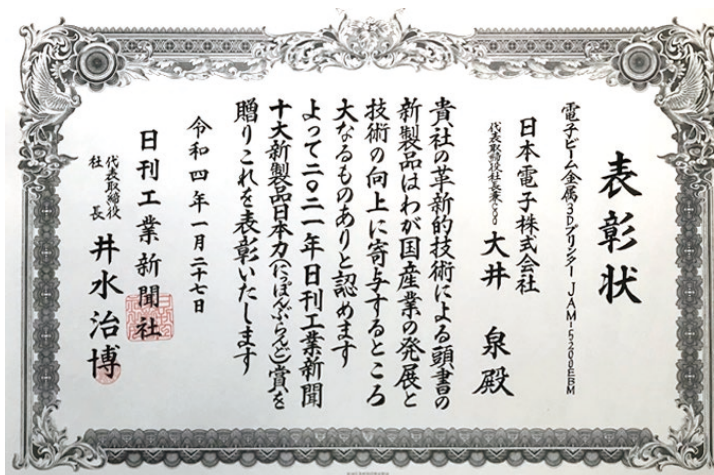 表彰状
電子ビーム金属3Dプリンター JAM-5200EBM
日本電子株式会社
代表取締役社長兼COO 大井 泉 殿
貴社の革新的技術による頭書の
新製品はわが国産業の発展と
技術の向上に寄与するところ
大なるものありと認めます
よって二〇二一年日刊工業新聞
十大新製品日本力(にっぽんぶらんど)賞を
贈りこれを表彰いたします
令和四年一月二十七日
日刊工業新聞社
代表取締役
社長 井水治博